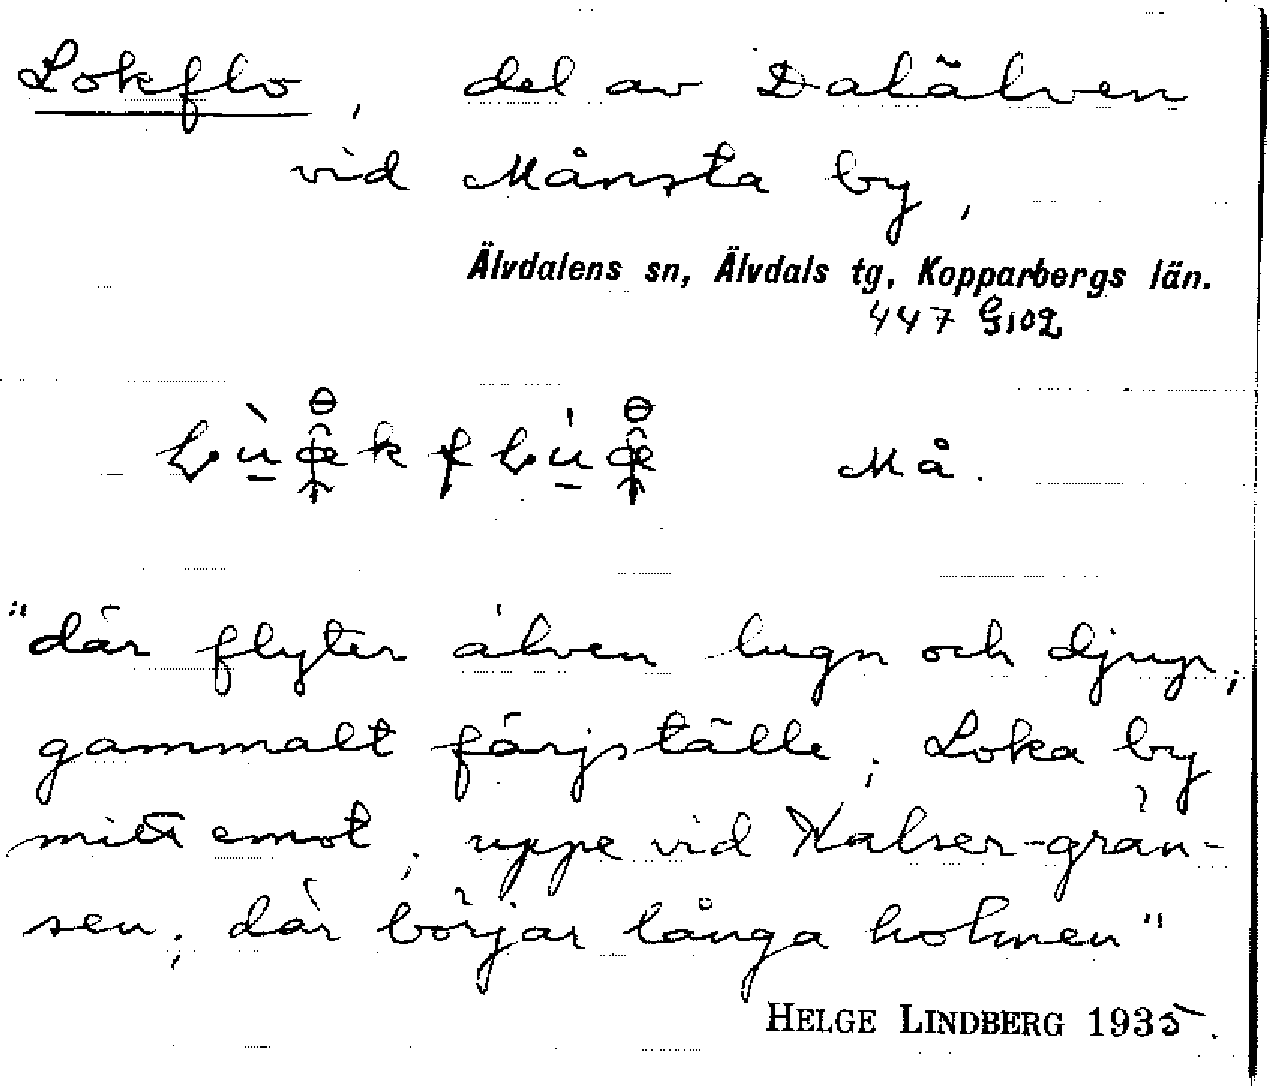 Lokflo, del av Dalälven
vid Månsta by,
Älvdalens sn, Älvdals tg, Kopparbergs län.
447 G102
Må.
"där flyter älven lugn och djup;
gammalt färjställe; Loka by
mitt emot; uppe vid Xalser-grän-
sen; där börjar långa holmen"
HELGE LINDBERG 1935.